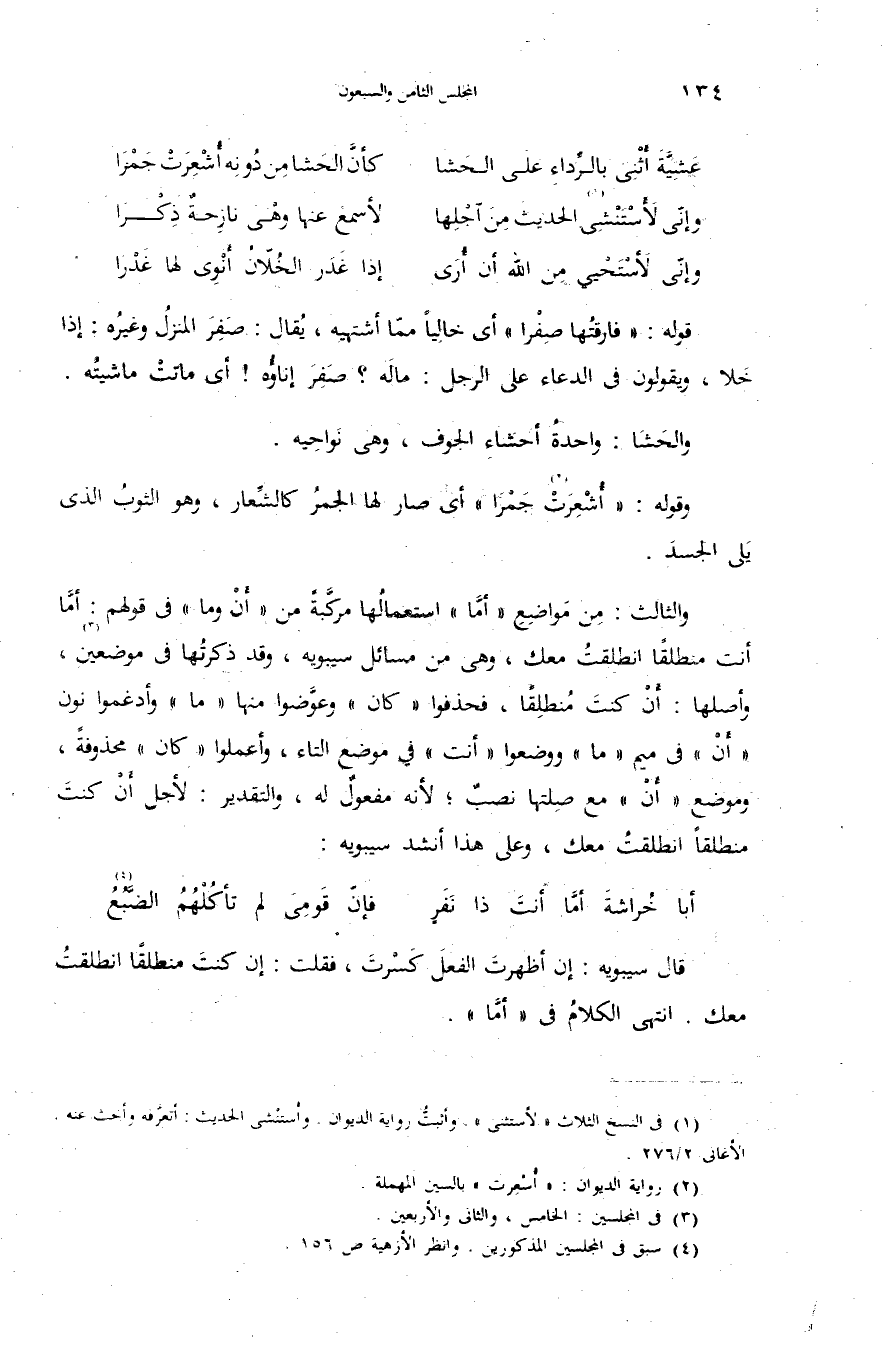 ١٣٤ المجلس الثامن والسبعون
عَشيَّةَ أُثْنِى بالـرِّداءِ علـى الـحَشا كأنَّ الحَشا مِن دُونِه أُشْعِرَتْ جَمْرَا
وإنّى لَأَسْتَنْشِى(١) الحديث مِنَ آجْلِها لأسمعَ عنها وهْـى نازِحـةٌ ذِكْـــرَا
وإنّى لَأَسْتَحْيي مِن الله أن أُرَى إذا غَدَر الخُلّانُ أَنْوِى لها غَدْرَا
قوله : « فارقتُها صفْرا » أى خالياً ممّا أشتهيه ، يُقال : صَفِرَ المنزلُ وغيرُه : إذا
خَلا ، ويقولون فى الدعاء على الرجل : مالَه ؟ صَفِرَ إناؤُه ! أى ماتتْ ماشيتُه .
والحَشَا : واحدةُ أحشاءِ الجوف ، وهى نَواحِيه .
وقوله : « أُشْعِرَتْ(٢) جَمْرَا » أى صار لها الجمرُ كالشِّعار ، وهو الثوبُ الذى
يَلى الجسدَ .
والثالث : مِن مَواضِعِ « أمَّا » استعمالُها مركَّبةً من « أنْ وما » فى قولهم : أمَّا
أنت منطلقًا انطلقتُ معك ، وهى من مسائل سيبويه ، وقد ذكرتُها فى موضعين(٣) ،
وأصلها : أنْ كنتَ مُنطلِقًا ، فحذفوا « كان » وعوَّضوا منها « ما » وأدغموا نون
« أَنْ » فى ميم « ما » ووضعوا « أنت » في موضع التاء ، وأعملوا « كان » محذوفةً ،
وموضع « أنْ » مع صِلتها نصبٌ ؛ لأنه مفعولٌ له ، والتقدير : لأجل أنْ كنتَ
منطلقاً انطلقتُ معك ، وعلى هذا أنشد سيبويه :
أبا خُراشةَ أمَّا أنتَ ذا نَفَرٍ فإنّ قَومِىَ لم تأكُلْهُمُ الضَّبُعُ(٤)
قال سيبويه : إن أظهرتَ الفعلَ كَسْرتَ ، فقلت : إن كنتَ منطلقًا انطلقتُ
معك . انتهى الكلامُ فى « أمَّا » .
(١) فى النسخ الثلاث « لأستثنى » . وأثبتُّ رواية الديوان . وأستنْشى الحديث : أتعرَّفه وأبحث عنه .
الأغانى ٢٧٦/٢ .
(٢) رواية الديوان : « أسْعِرت » بالسين المهملة .
(٣) فى المجلسين : الخامس ، والثانى والأربعين .
(٤) سبق فى المجلسين المذكورين . وانظر الأزهية ص ١٥٦ .